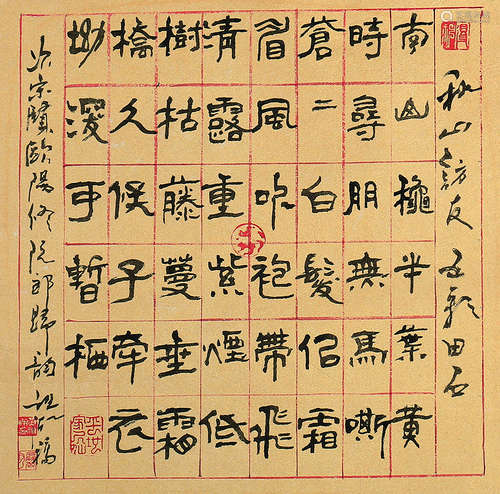 秋山訪友 田石
南山穐半葉黃
時尋朋無馬嘶
蒼二白髮侶霜
眉風吹袍帶飛
清露重紫煙低
樹枯藤蔓垂霜
橋久候子牽衣
坳深可暫栖
次宋賢歐陽修阮郎歸韻 稿